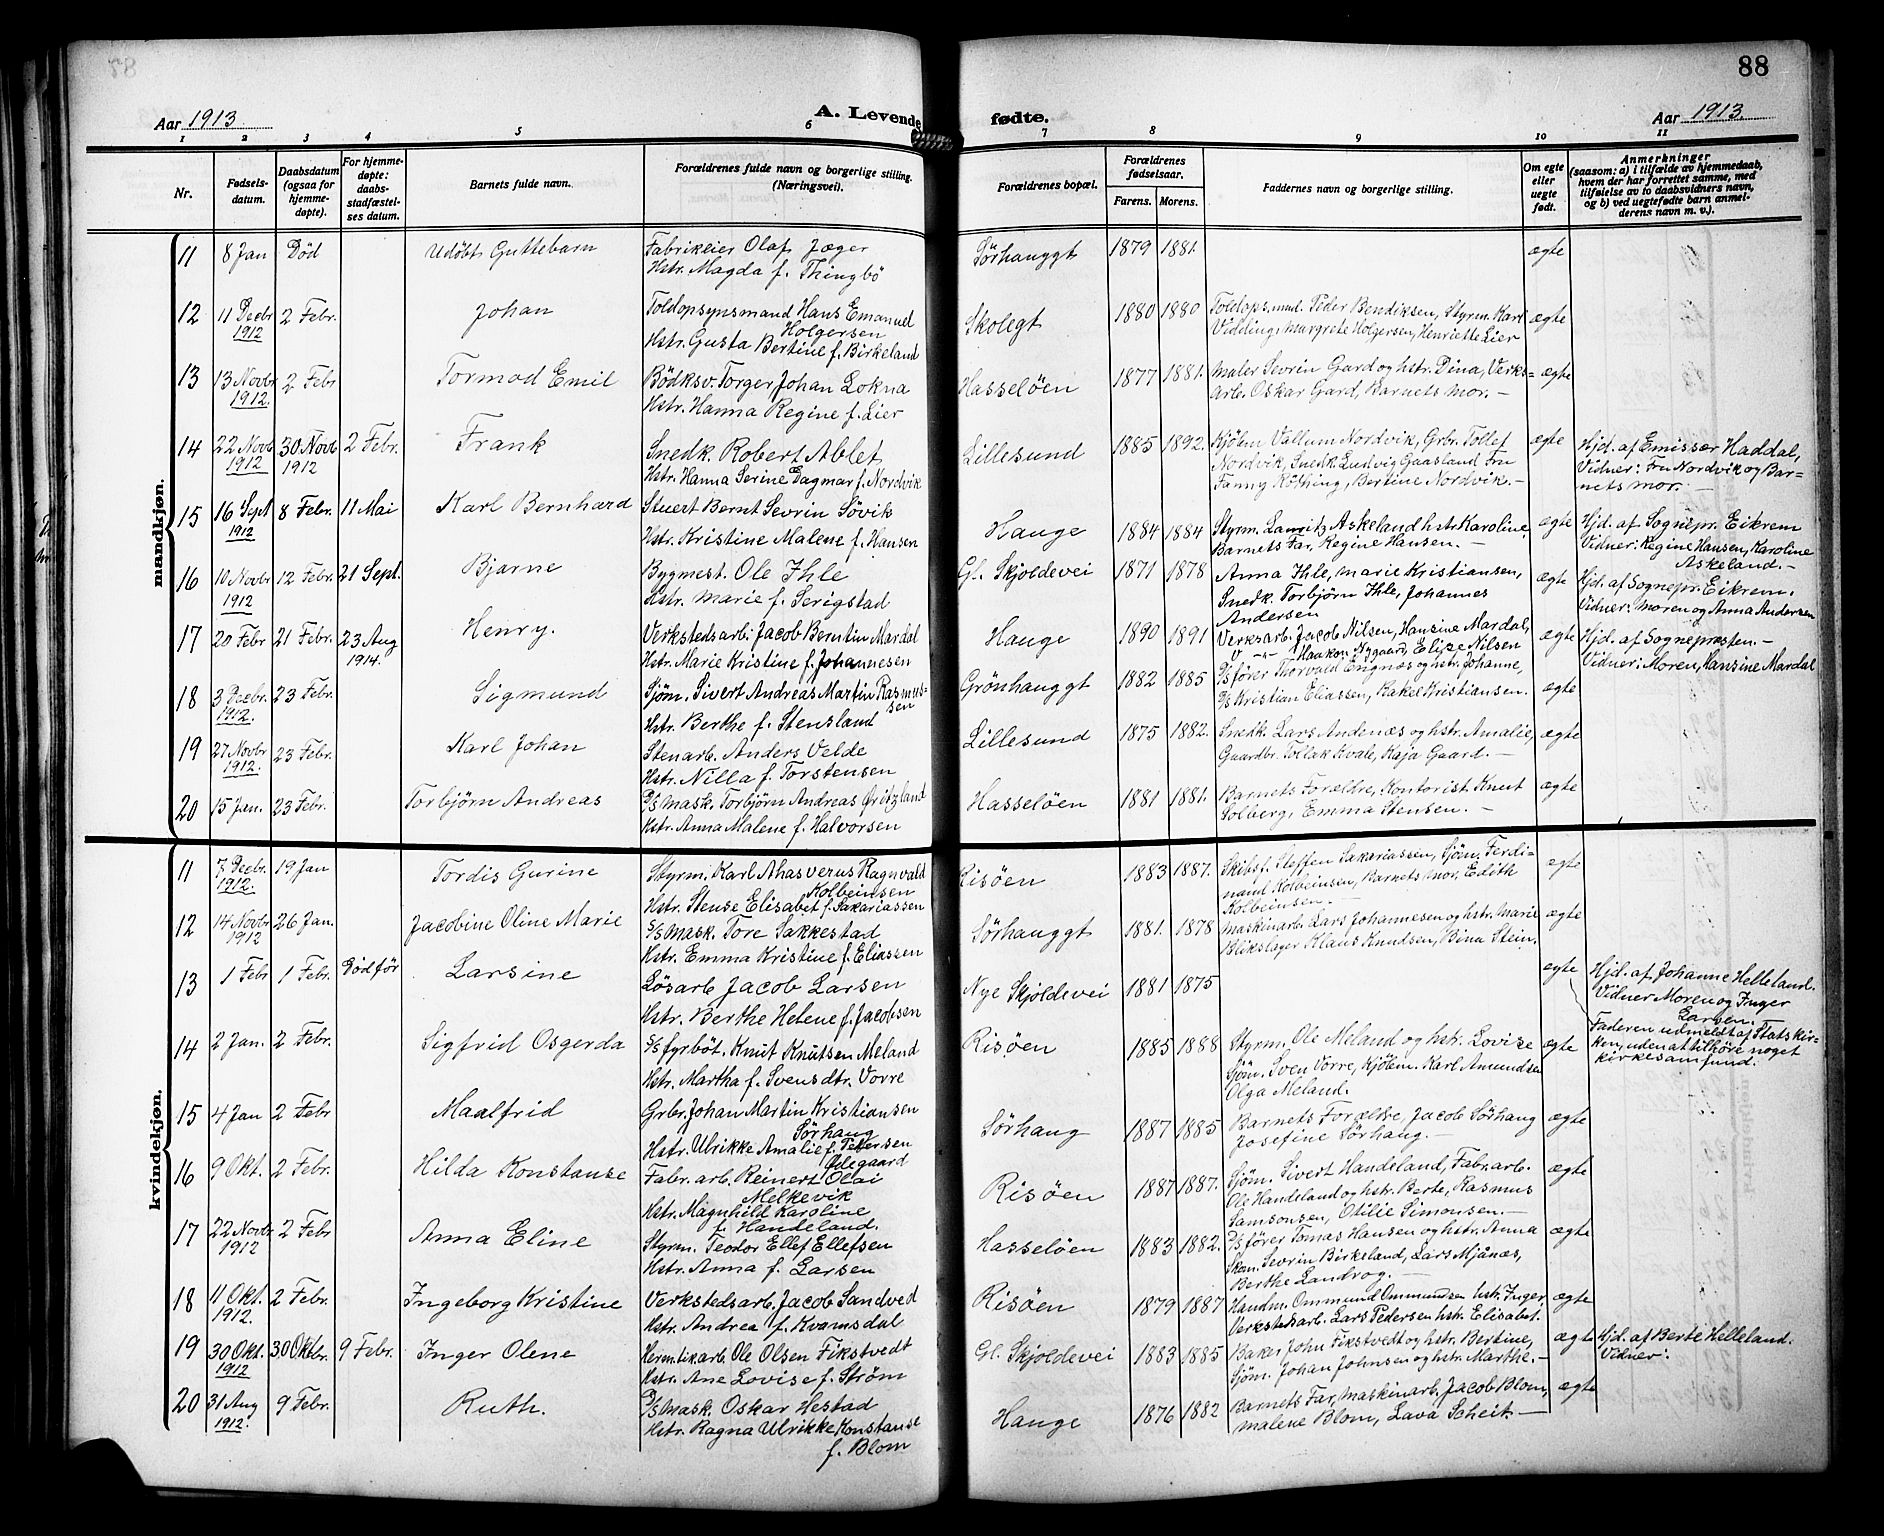 88
Aar 1913. A. Levende fødte. Aar 1913.
1 2 3 4 5 6 7 8 9 10 11
Nr. Fødsels-datum. Daabsdatum (ogsaa for hjemme-døpte). For hjemme-døpte: daabs-stadfæstel-ses datum. Barnets fulde navn. Forældrenes fulde navn og borgerlige stilling. (Næringsvei). Forældrenes bopæl. Forældrenes fødselsaar. Farens. Morens. Faddernes navn og borgerlige stilling. Om egte eller uegte født. Anmerkninger (saasom: a) i tilfælde av hjemmedaab, hvem der har forrettet samme, med tilføielse av to daabsvidners navn, og b) ved uegtefødte barn anmel-derens navn m. v.).
mandkjøn.
11 8 Jan Død Udøbt Guttebarn Fabrikeier Olaf Jæger Sørhauggt 1879 1881. ægte
Hstr. Magda f. Thingbö
12 11 Decbr 1912 2 Febr. Johan Toldopsynsmand Hans Emanuel Holgersen Skolegt 1880 1880 Toldops.mnd. Peder Bendiksen, Styrm. Karl ægte
Hstr. Gusta Bertine f. Birkeland Videling, Margrete Holgersen, Henriette Lier
13 13 Novbr 1912. 2 Febr Tormod Emil Bödksv. Torger Johan Lokna Hasselöen 1877 1881. Maler Sevrin Gard og hstr. Dina, Verks- ægte
Hstr. Hanna Regine f. Lier arb. Oskar Gard, Barnets mor. -
14 22 Novb 1912 30 Novb 1912 2 Febr. Frank Snedk. Robert Ablet Lillesund 1885 1892. Kjöbm Vallum Nordvik, Grbr. Tollef ægte Hjd. af Emissær Haddal,
Hstr. Hanna Serine Dagmar f. Nordvik Nordvik, Snedk. Ludvig Gaasland Fru Vidner: Fru Nordvik og Bar-
Fanny Köthing, Bertine Nordvik. - nets mor. -
15 16 Sept 1912 8 Febr. 11 Mai Karl Bernhard Stuert Bernt Sevrin Sövik Hauge 1884 1884 Styrm. Lauritz Askeland hstr Karoline, ægte Hjd. af Sognepr. Eikrem
Hstr. Kristine Malene f. Hansen Barnets Far, Regine Hansen. - Vidner: Regine Hansen, Karoline Askeland. -
16 10 Novbr 1912 12 Febr. 21 Sept. Bjarne Bygmest. Ole Ihle Gl. Skjoldevei 1871 1878 Anna Ihle, Marie Kristiansen, ægte Hjd. af Sognepr. Eikrem.
Hstr. Marie f. Serigstad Snedk. Torbjörn Ihle, Johannes Andersen Vidner: Moren og Anna Andersen
17 20 Febr 21 Febr. 23 Aug 1914. Henry. Verkstedsarb. Jacob Berntin Mardal Hauge 1890 1891 Verksarb. Jacob Nilsen, Hansine Mardal, ægte Hjd. af Sognepresten -
Hstr. Marie Kristine f. Johannesen V -"- Haakon Nygaard, Elise Nilsen Vidner: Moren, Hansine Mardal
18 3 Decbr. 1912. 23 Febr. Sigmund Sjöm. Sivert Andreas Martin Rasmus-sen Grönhauggt 1882 1885 D/S förer Thorvald Engnæs og hstr. Johanne, ægte
Hstr. Berthe f. Stensland D/S Kristian Eliassen, Rakel Kristiansen.
19 27 Novbr 1912. 23 Febr. Karl Johan Stenarb. Anders Velde Lillesund 1875 1882. Snedk. Lars Andenæs og hstr. Amalie, ægte
Hstr. Nilla f. Torstensen Gaardbr. Tollak Kvale, Kaja Gaard. -
20 15 Jan. 23 Febr. Torbjörn Andreas D/S Mask. Torbjörn Andreas Gritzland Hasselöen 1881 1881. Barnets Forældre, Kontorist Knut ægte
Hstr. Anna Malene f. Halvorsen Solberg, Emma Stensen. -
kvindekjøn.
11 7 Decbr. 1912. 19 Jan Tordis Gurine Styrm. Karl Ahasverus Ragnvald Kolbeinsen Risöen 1883 1887. Skibsf. Steffen Sakariassen, Sjöm. Ferdi- ægte
Hstr. Stense Elisabet f. Sakariassen nand Kolbeinsen, Barnets mor, Edith Kolbeinsen. -
12 14 Novbr 1912 26 Jan. Jacobine Oline Marie S/S Mask. Tore Sakkestad Sörhauggt 1881. 1878 Maskinarb. Lars Johannesen og hstr. Marie ægte
Hstr. Emma Kristine f. Eliassen Blikslager Klaus Knudsen, Bina Stein.
13 1 Febr 1 Febr. Död för Larsine Lösarb Jacob Larsen Nye Skjoldevei 1881 1875 ægte Hjd. af Johanne Helleland.
Hstr. Berthe Helene f. Jacobsen Vidner Moren og Inger Larsen. -
Faderen udmeldt af Statskir-
14 2 Jan. 2 Febr. Sigfrid Osgerda S/S fyrböt. Knut Knutsen Meland Risöen 1885 1888 Styrm. Ole Meland og hstr. Lovise ægte ken, uden at tilhöre noget
Hstr. Martha f. Svensdtr. Vorre Sjöm. Sven Vorre, Kjöbm. Karl Amundsen kirkesamfund.
Olga Meland.
15 4 Jan 2 Febr Maalfrid Grbr. Johan Martin Kristiansen Sörhaug Sörhaug 1887 1885 Barnets Forældre, Jacob Sörhaug ægte
Hstr. Ulrikke Amalie f. Petersen Ödegaard Josefine Sörhaug. -
16 9 Okt. 2 Febr. Hilda Konstanse Fabr. arb. Reinert Olai Melkevik Risöen 1887 1887. Sjöm. Sivert Handeland, Fabr. arb. ægte
Hstr. Magnhild Karoline f. Handeland. Ole Handeland og hstr. Berte, Rasmus
Samsonsen, Otilie Simonsen. -
17 22 Novbr 1912 2 Febr Anna Eline Styrm. Teodor Ellef Ellefsen Hasselöen 1883 1882. D/S förer Tomas Hansen og hstr. Anna ægte
Hstr. Anna f. Larsen Skm. Sevrin Birkeland, Lars Mjånæs,
Berthe Landrog. -
18 11 Okt. 1912. 2 Febr. Ingeborg Kristine Verkstedsarb. Jacob Sandved Risöen 1879 1887 Handm. Ommund Ommundsen hstr. Inger, ægte
Hstr. Andrea f. Kvamsdal Verkstedsarb. Lars Pedersen hstr. Elisabet.
19 30 Okt. 1912 30 Oktbr. 9 Febr. Inger Olene Hermetikarb. Ole Olsen Fikstvedt Gl. Skjoldevei 1883 1885 Baker John Fikstvedt og hstr. Bertine, ægte Hjd. af Berte Helleland.
Hstr. Ane Lovise f. Ström Sjöm. Johan Johnsen og hstr. Marthe. - Vidner:
20 31 Aug 1912. 9 Febr. Ruth. D/S Mask. Oskar Hestad Hauge 1876 1882 Barnets Far, Maskinarb. Jacob Blom, ægte
Hstr. Ragna Ulrikke Konstanse f. Blom Malene Blom, Lava Scheit. -